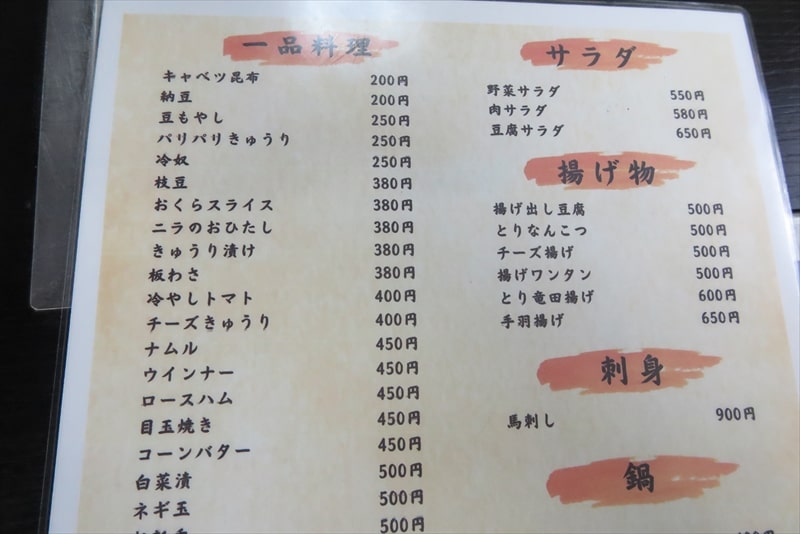 一品料理
キャベツ昆布 200円
納豆 200円
豆もやし 250円
パリパリきゅうり 250円
冷奴 250円
枝豆 380円
おくらスライス 380円
ニラのおひたし 380円
きゅうり漬け 380円
板わさ 380円
冷やしトマト 400円
チーズきゅうり 400円
ナムル 450円
ウインナー 450円
ロースハム 450円
目玉焼き 450円
コーンバター 450円
白菜漬 500円
ネギ玉 500円
500円
サラダ
野菜サラダ 550円
肉サラダ 580円
豆腐サラダ 650円
揚げ物
揚げ出し豆腐 500円
とりなんこつ 500円
チーズ揚げ 500円
揚げワンタン 500円
とり竜田揚げ 600円
手羽揚げ 650円
刺身
馬刺し 900円
鍋